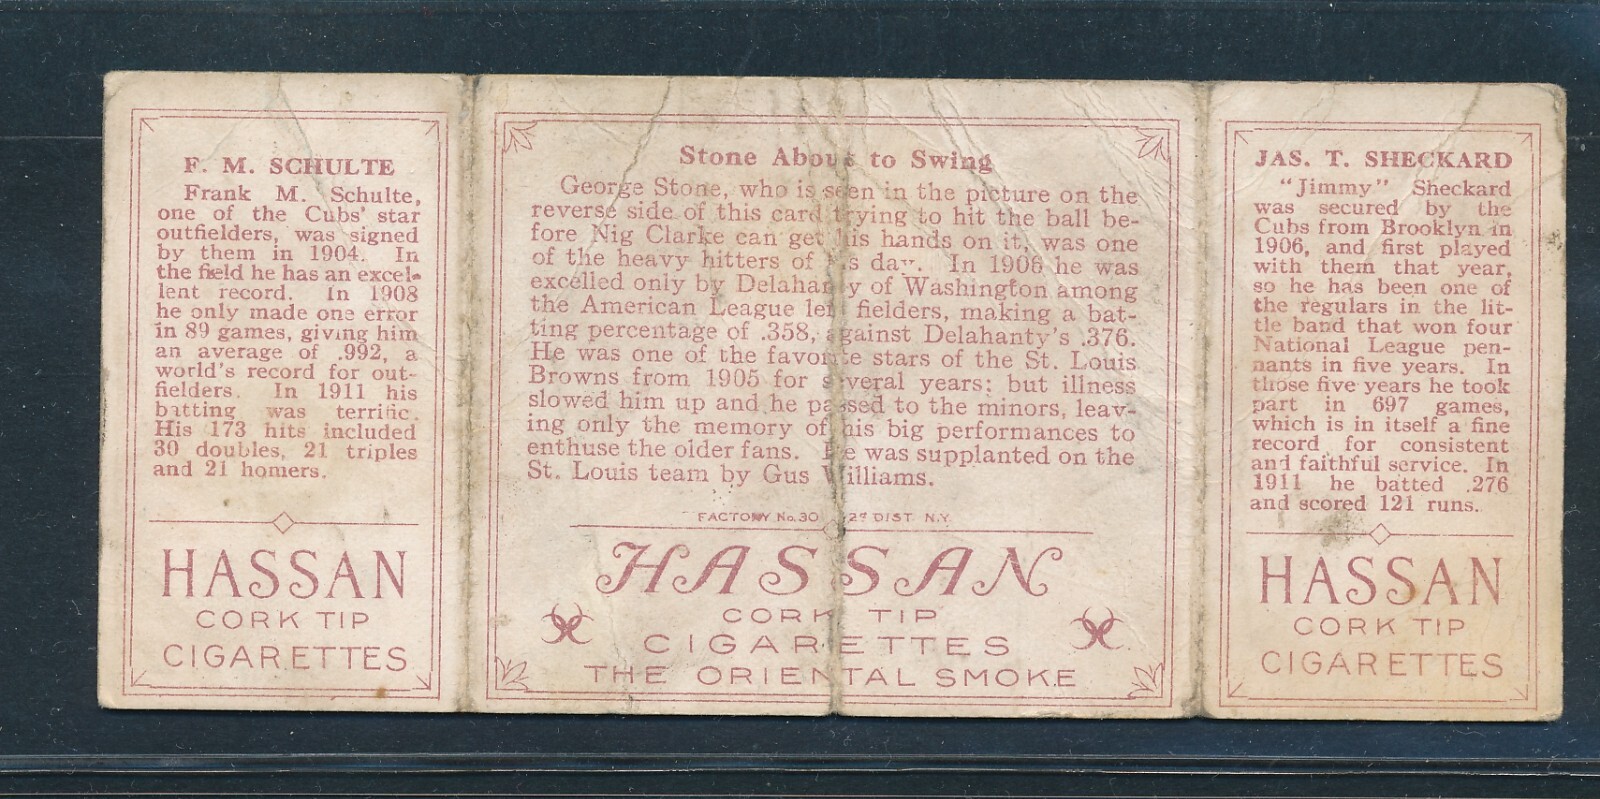 F. M. SCHULTE
Frank M. Schulte,
one of the Cubs' star
outfielders, was signed
by them in 1904. In
the field he has an excel-
lent record. In 1908
he only made one error
in 89 games, giving him
an average of .992, a
world's record for out-
fielders. In 1911 his
batting was terrific.
His 173 hits included
30 doubles, 21 triples
and 21 homers.
HASSAN
CORK TIP
CIGARETTES
Stone About to Swing
George Stone, who is seen in the picture on the
reverse side of this card trying to hit the ball be-
fore Nig Clarke can get his hands on it, was one
of the heavy hitters of his day. In 1906 he was
excelled only by Delahanty of Washington among
the American League left fielders, making a bat-
ting percentage of .358, against Delahanty's .376.
He was one of the favorite stars of the St. Louis
Browns from 1905 for several years; but illness
slowed him up and he passed to the minors, leav-
ing only the memory of his big performances to
enthuse the older fans. He was supplanted on the
St. Louis team by Gus Williams.
FACTORY No. 30 2d DIST. N.Y.
HASSAN
CORK TIP
CIGARETTES
THE ORIENTAL SMOKE
JAS. T. SHECKARD
"Jimmy" Sheckard
was secured by the
Cubs from Brooklyn in
1906, and first played
with them that year,
so he has been one of
the regulars in the lit-
tle band that won four
National League pen-
nants in five years. In
those five years he took
part in 697 games,
which is in itself a fine
record for consistent
and faithful service. In
1911 he batted .276
and scored 121 runs.
HASSAN
CORK TIP
CIGARETTES